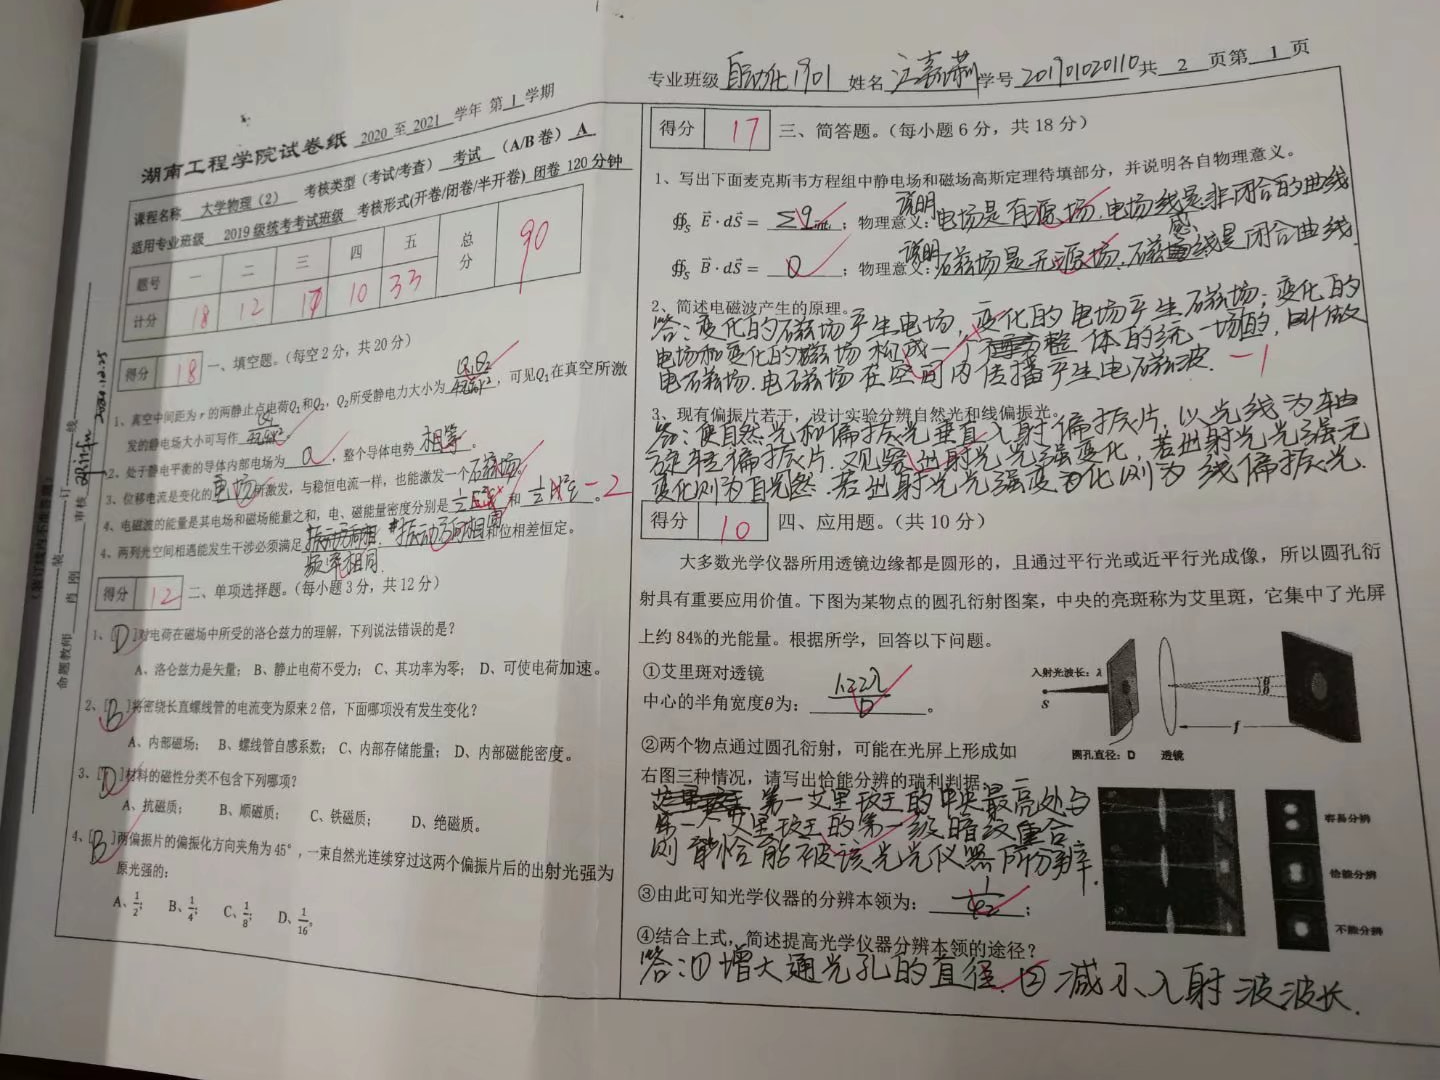 专业班级 自动化1901 姓名 学号 201901020110 共 2 页第 1 页
湖南工程学院试卷纸 2020 至 2021 学年 第 1 学期
课程名称 大学物理（2） 考核类型（考试/考查） 考试 （A/B 卷） A
适用专业班级 2019 级统考考试班级 考核形式(开卷/闭卷/半开卷) 闭卷 120 分钟
题号 一 二 三 四 五 总分
计分 18 12 17 10 33 90
命题教师 肖刚 审核
装 订 线
得分 18 一、填空题。（每空 2 分，共 20 分）
1、真空中间距为 r 的两静止点电荷Q₁和Q₂，Q₂所受静电力大小为 ，可见Q₁在真空所激
发的静电场大小可写作 。
2、处于静电平衡的导体内部电场为 0 ，整个导体电势 相等 。
3、位移电流是变化的 电场 所激发，与稳恒电流一样，也能激发一个 磁场 。
4、电磁波的能量是其电场和磁场能量之和，电、磁能量密度分别是 和 。 -2
4、两列光空间相遇能发生干涉必须满足 振动方向相同 和位相差恒定。
频率相同.
得分 12 二、单项选择题。（每小题 3 分，共 12 分）
1、[D]对电荷在磁场中所受的洛仑兹力的理解，下列说法错误的是？
A、洛仑兹力是矢量； B、静止电荷不受力； C、其功率为零； D、可使电荷加速。
2、[B]将密绕长直螺线管的电流变为原来 2 倍，下面哪项没有发生变化？
A、内部磁场； B、螺线管自感系数； C、内部存储能量； D、内部磁能密度。
3、[D]材料的磁性分类不包含下列哪项？
A、抗磁质； B、顺磁质； C、铁磁质； D、绝磁质。
4、[B]两偏振片的偏振化方向夹角为 45°，一束自然光连续穿过这两个偏振片后的出射光强为
原光强的：
A、1/2； B、1/4； C、1/8； D、1/16。
得分 17 三、简答题。（每小题 6 分，共 18 分）
1、写出下面麦克斯韦方程组中静电场和磁场高斯定理待填部分，并说明各自物理意义。
∯S E⃗·dS⃗ = ；物理意义：说明电场是有源场，电场线是非闭合的曲线
∯S B⃗·dS⃗ = 0 ；物理意义：说明磁场是无源场，磁感线是闭合曲线.
2、简述电磁波产生的原理。
答：变化的磁场产生电场，变化的电场产生磁场；变化的
电场和变化的磁场构成一个整体的统一场的，叫做
电磁场.电磁场在空间内传播产生电磁波. -1
3、现有偏振片若干，设计实验分辨自然光和线偏振光。
答：使自然光和偏振光垂直入射偏振片，以光线为轴
旋转偏振片.观察出射光光强变化，若出射光光强无
变化则为自然光.若出射光光强变化则为线偏振光.
得分 10 四、应用题。（共 10 分）
大多数光学仪器所用透镜边缘都是圆形的，且通过平行光或近平行光成像，所以圆孔衍
射具有重要应用价值。下图为某物点的圆孔衍射图案，中央的亮斑称为艾里斑，它集中了光屏
上约 84%的光能量。根据所学，回答以下问题。
①艾里斑对透镜
中心的半角宽度θ为： 1.22λ/D 。
入射光波长：λ
S
θ
f
圆孔直径：D 透镜
②两个物点通过圆孔衍射，可能在光屏上形成如
右图三种情况，请写出恰能分辨的瑞利判据。
第一艾里斑的中央最高处与
另一艾里斑的第一级暗纹重合
则能恰能被该光学仪器所分辨.
容易分辨
恰能分辨
不能分辨
③由此可知光学仪器的分辨本领为： ；
④结合上式，简述提高光学仪器分辨本领的途径？
答：①增大通光孔的直径.②减小入射波波长.